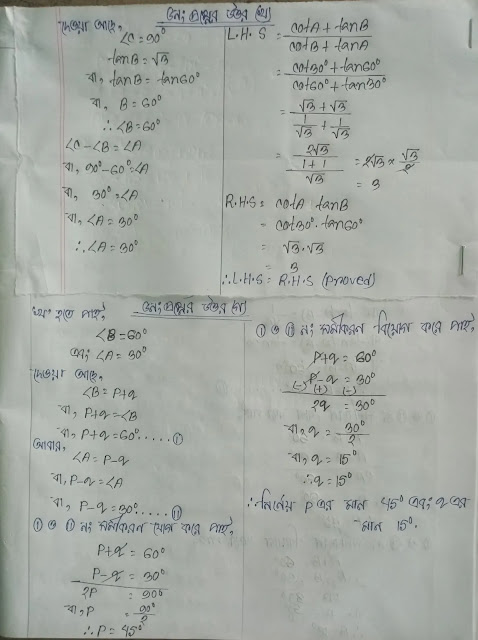 ৩নং প্রশ্নের উত্তর (খ)
দেওয়া আছে,
∠C = 90°
tanB = √3
বা, tanB = tan60°
বা, B = 60°
∴ ∠B = 60°
∠C - ∠B = ∠A
বা, 90° - 60° = ∠A
বা, 30° = ∠A
বা, ∠A = 30°
∴ ∠A = 30°
L.H.S = cotA + tanB / cotB + tanA
= cot30° + tan60° / cot60° + tan30°
= √3 + √3 / 1/√3 + 1/√3
= 2√3 / 1+1/√3 = 2√3 × √3/2
= 3
R.H.S = cotA tanB
= cot30°. tan60°
= √3 . √3
= 3
∴ L.H.S = R.H.S (proved)
৩নং প্রশ্নের উত্তর (গ)
'খ' হতে পাই,
∠B = 60°
এবং ∠A = 30°
দেওয়া আছে,
∠B = P+q
বা, P+q = ∠B
বা, P+q = 60° ..... (i)
আবার,
∠A = P-q
বা, P-q = ∠A
বা, P-q = 30° ..... (ii)
(i) ও (ii) নং সমীকরণ যোগ করে পাই,
P+q = 60°
P-q = 30°
2P = 90°
বা, P = 90°/2
∴ P = 45°
(i) ও (ii) নং সমীকরণ বিয়োগ করে পাই,
P+q = 60°
P-q = 30°
(-) (+) (-)
2q = 30°
বা, q = 30°/2
বা, q = 15°
∴ q = 15°
∴ নির্ণেয় P এর মান 45° এবং q এর
মান 15°.